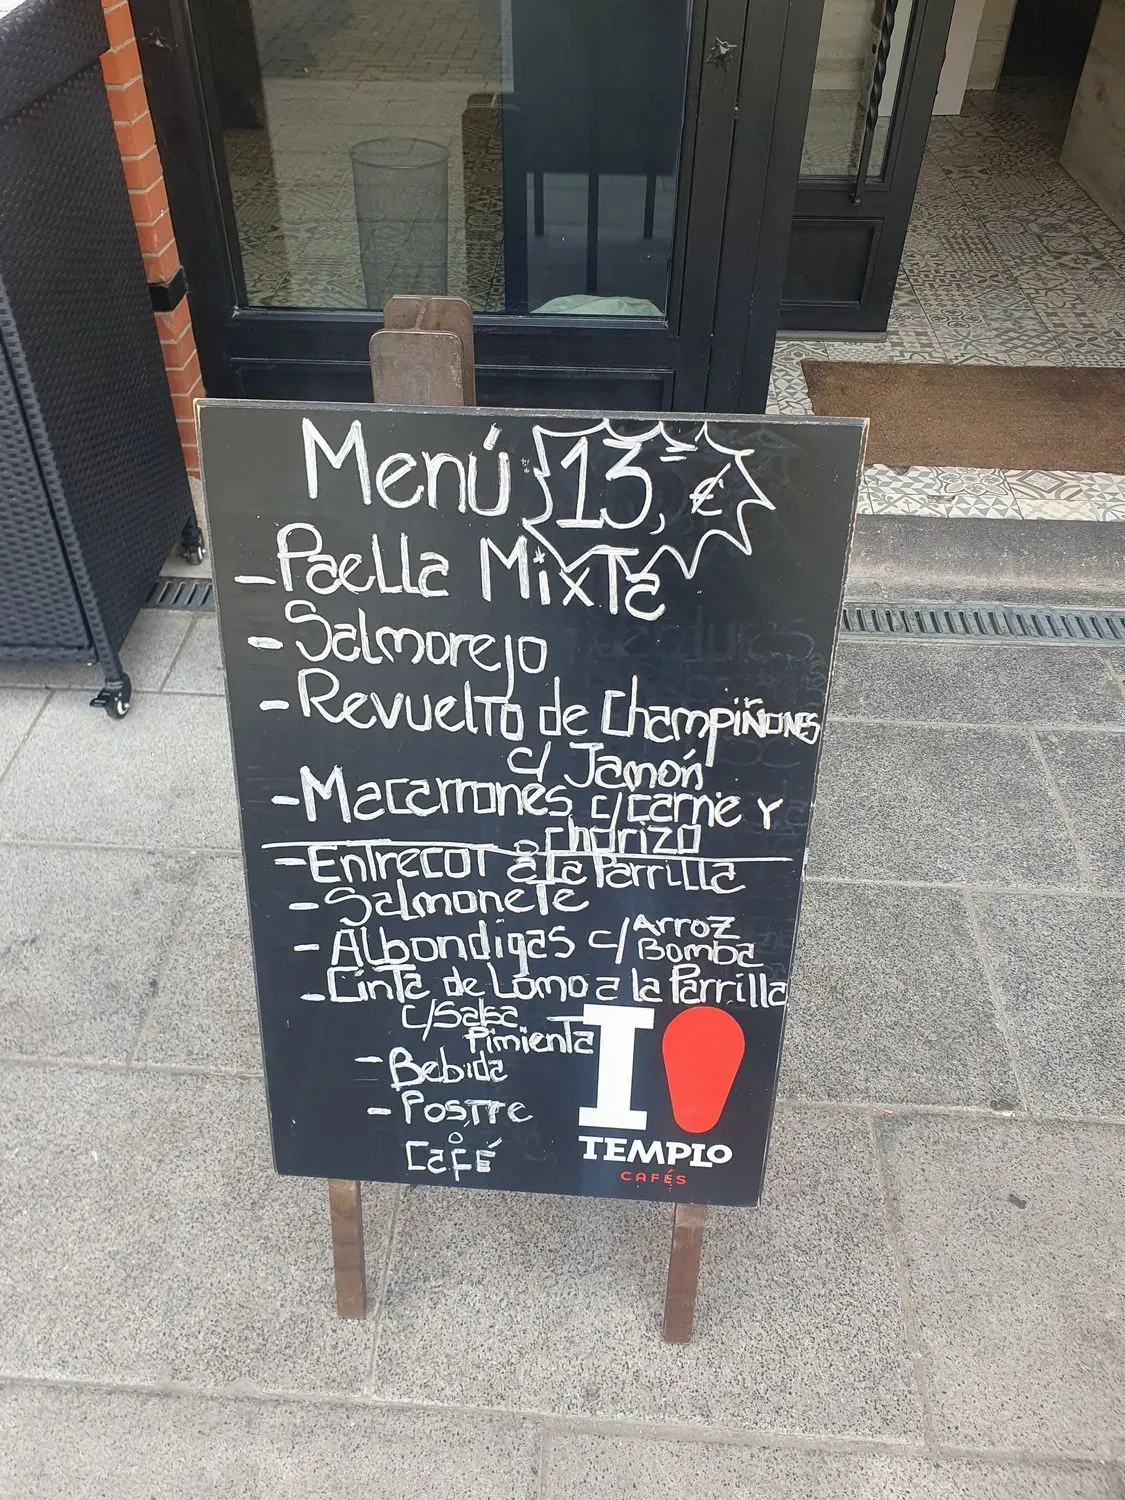 Menú 13,= €
- Paella Mixta
- Salmorejo
- Revuelto de Champiñones
c/ Jamón
- Macarrones c/carne y
chorizo
- Entrecot a la Parrilla
- Salmonete
- Albondigas c/ Arroz
Bomba
- Cinta de Lomo a la Parrilla
c/Salsa
Pimienta
- Bebida
- Postre
o
Café
I
TEMPLO
CAFÉS